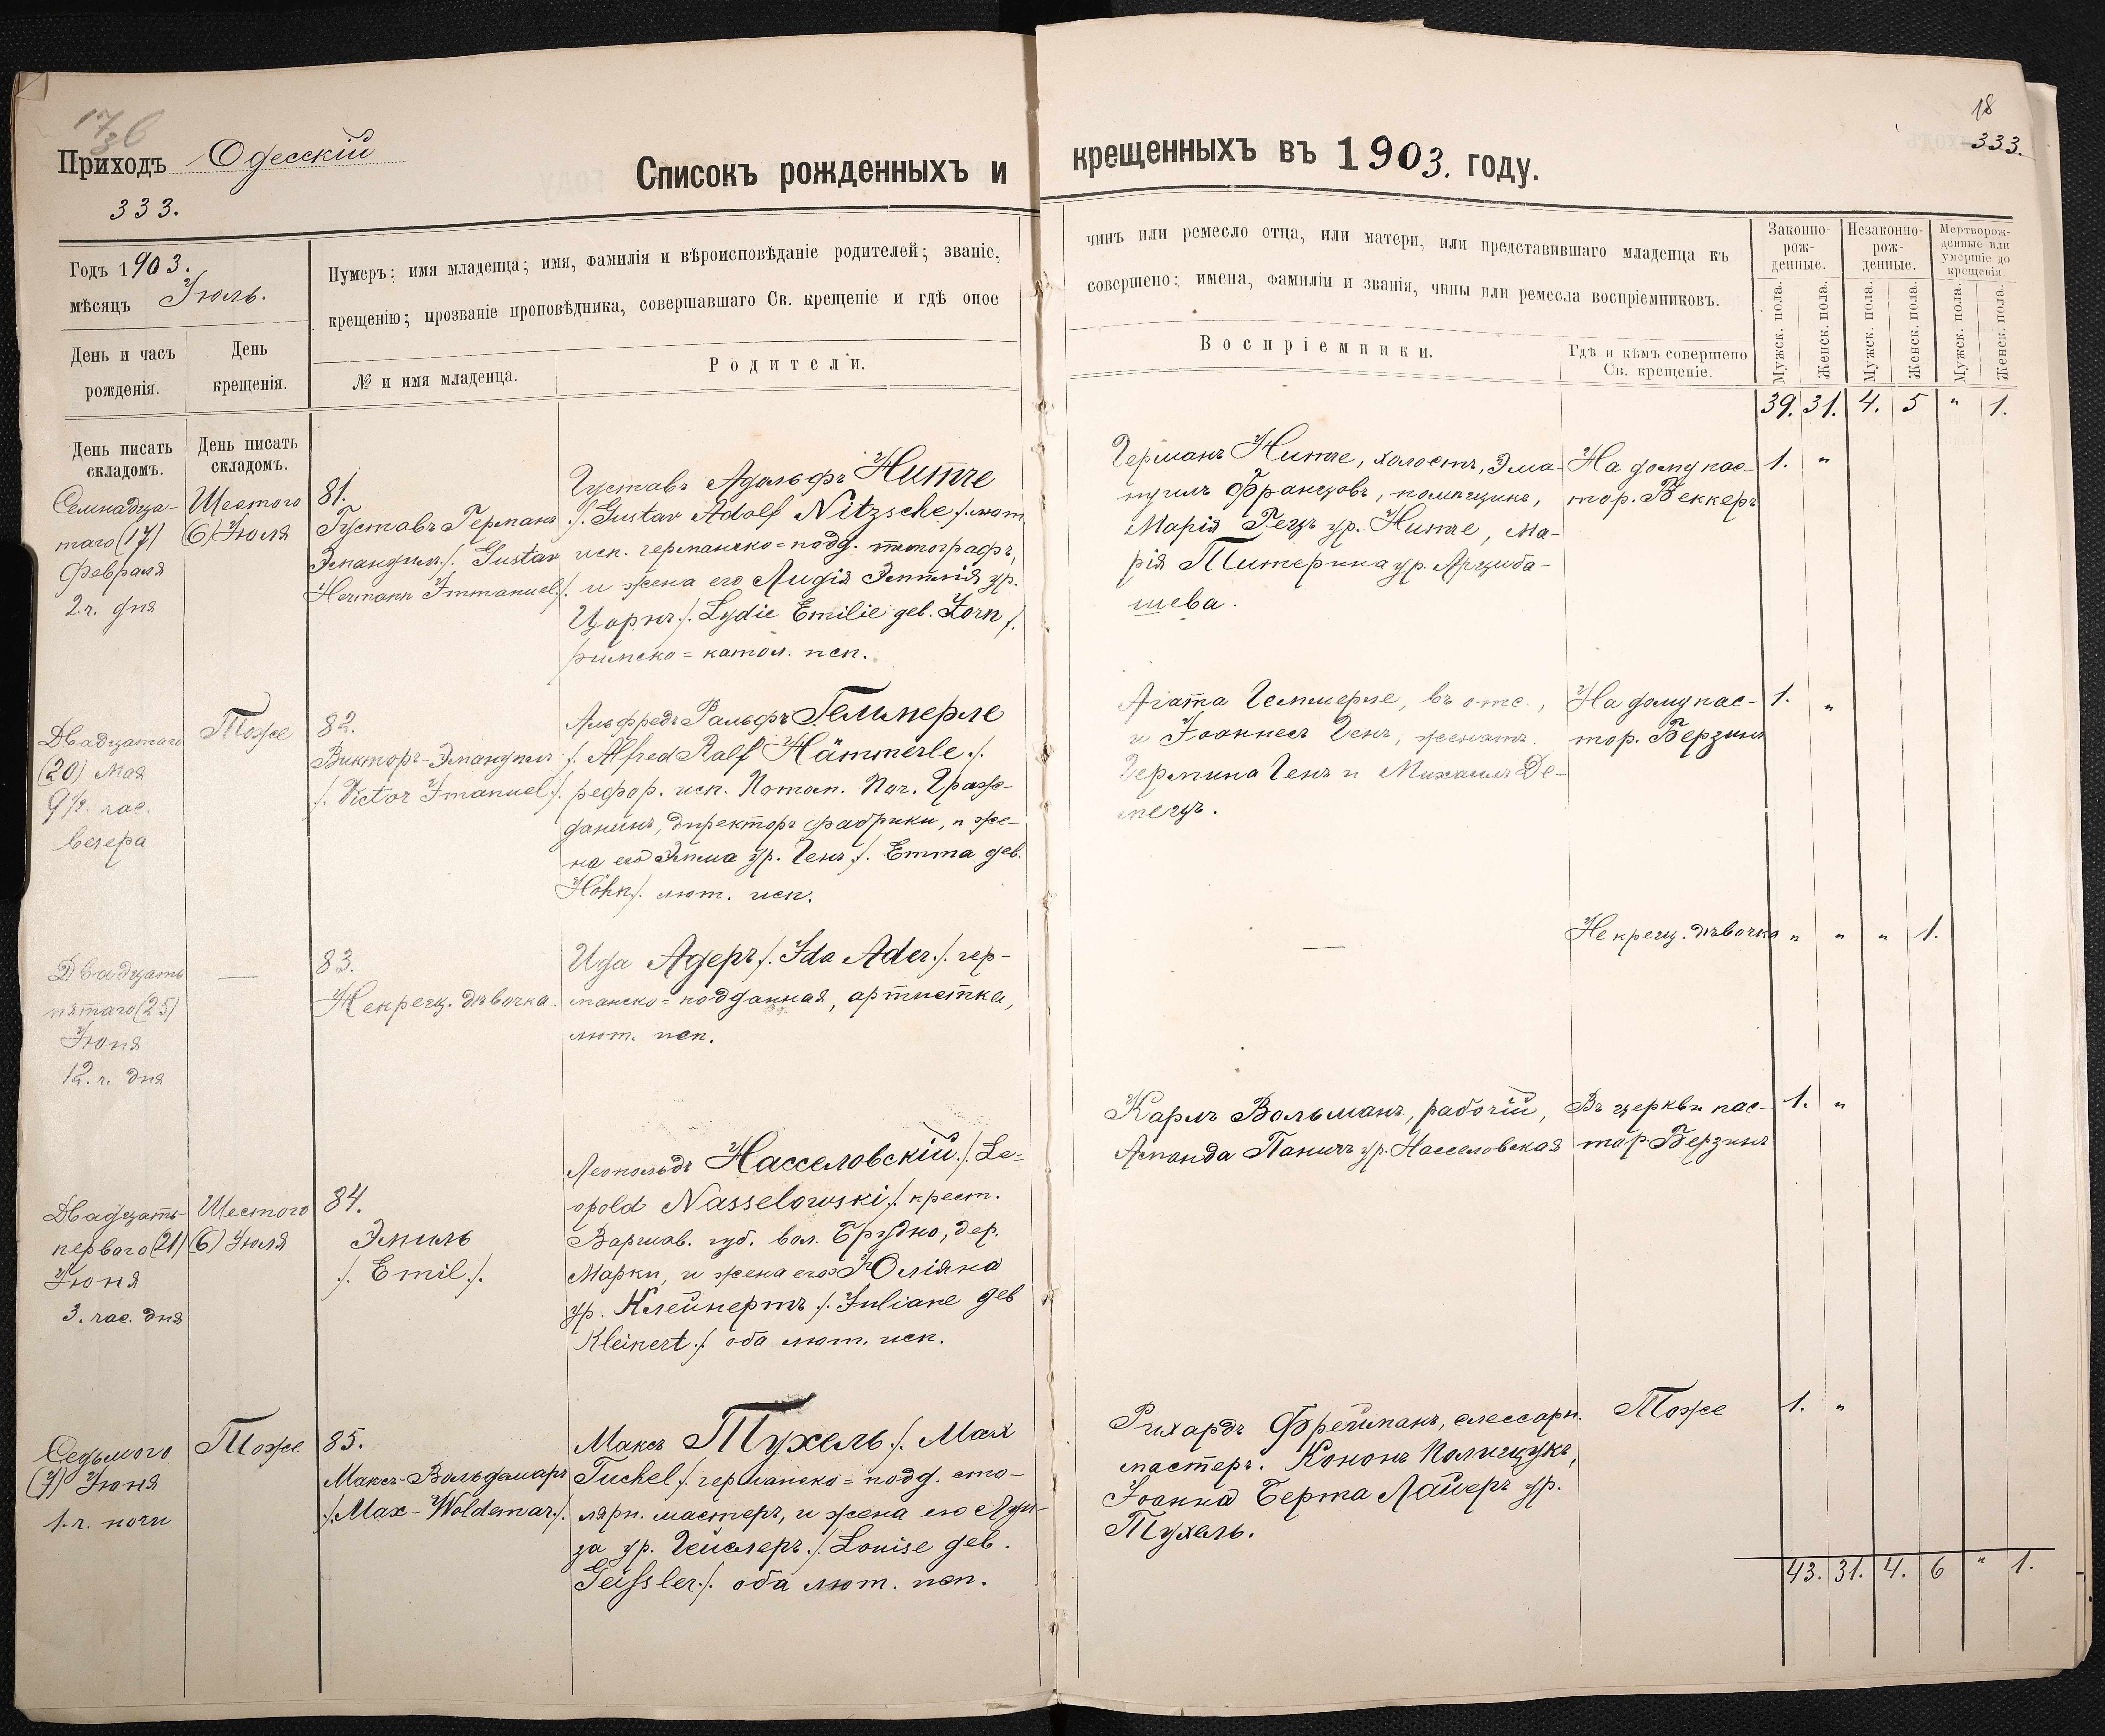 Приходъ Одесскій
333.
Списокъ рожденныхъ и крещенныхъ въ 1903. году.
18
333.
Годъ 1903.
мѣсяцъ Іюль.
Нумеръ; имя младенца; имя, фамилія и вѣроисповѣданіе родителей; званіе,
крещенію; прозваніе проповѣдника, совершавшаго Св. крещеніе и гдѣ оное
чинъ или ремесло отца, или матери, или представившаго младенца къ
совершено; имена, фамиліи и званія, чины или ремесла воспріемниковъ.
День и часъ
рожденія.
День
крещенія.
№ и имя младенца.
Родители.
Воспріемники.
Гдѣ и кѣмъ совершено
Св. крещеніе.
Законно-
рож-
денные.
Незаконно-
рож-
денные.
Мертворож-
денные или
умершіе до
крещенія
Мужск. пола.
Женск. пола.
Мужск. пола.
Женск. пола.
Мужск. пола.
Женск. пола.
39. 31. 4. 5 " 1.
День писать
складомъ.
День писать
складомъ.
Семнадца-
таго (17)
Февраля
2 ч. дня
Шестого
(6) Іюля
81.
Густавъ Германъ
Эмануилъ ./. Gustav
Hermann Immanuel ./.
Густавъ Адольфъ Нитче
./. Gustav Adolf Nitzsche ./. лют.
исп. германско=подд.
и жена его Лидія Эмилія ур.
Цорнъ ./. Lydie Emilie geb. Zorn ./.
римско=катол. исп.
Германъ Нитче, холостъ, Эма-
нуилъ Францовъ, помѣщикъ,
Марія Рецъ ур. Нитче, Ма-
рія Питерина ур. Арцыба-
шева.
На дому пас-
тор. Беккеръ
1. "
Двадцатаго
(20) Мая
9½ час.
вечера
Тоже
82.
Викторъ-Эмануилъ
./. Victor Imanuel ./.
Альфредъ Ральфъ Геммерле
./. Alfred Ralf Hämmerle ./.
рефор. исп. Потом. Поч. Граж-
данинъ, директоръ фабрики, и же-
на его Эмма ур. Генъ ./. Emma geb.
Höhn ./. лют. исп.
Агата Геммерле, въ отс.,
и Іоаннесъ Генъ, женатъ.
Гермина Генъ и Михаилъ Де-
мецъ.
На дому пас-
тор. Берзинъ
1. "
Двадцать
пятаго (25)
Іюня
12. ч. дня
—
83.
Некрещ. дѣвочка.
Ида Адеръ ./. Ida Ader ./. гер-
манско=подданная, артистка,
лют. исп.
—
Некрещ. дѣвочка
" " " 1.
Двадцать-
перваго (21)
Іюня
3. час. дня
Шестого
(6) Іюля
84.
Эмиль
./. Emil ./.
Леопольдъ Насселовскій ./. Le=
opold Nasselowski ./. крест.
Варшав. губ. вол. Брудно, дер.
Марки, и жена его Юліяна
ур. Клейнертъ ./. Juliane geb
Kleinert ./. оба лют. исп.
Карлъ Вольманъ, рабочій,
Аманда Паничъ ур. Насселовская
Въ церкви пас-
тор. Берзинъ
1. "
Седьмого
(7) Іюня
1. ч. ночи
Тоже
85.
Максъ-Вольдемаръ
./. Max-Woldemar ./.
Максъ Тухель ./. Max
Tuchel ./. германско=подд. сто-
лярн. мастеръ, и жена его Луи-
за ур. Гейслеръ ./. Louise geb.
Geissler ./. оба лют. исп.
Рихардъ Фрейманъ, слесарн.
мастеръ. Кононъ Полищукъ,
Іоанна Берта Лайеръ ур.
Тухель.
Тоже
1. "
43. 31. 4. 6 " 1.